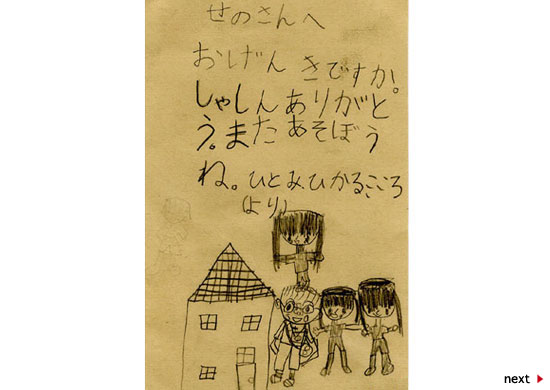 せのさんへ
おげんきですか。
しゃしんありがと
う。またあそぼう
ね。ひとみ、ひかる、こころ
(より)
next